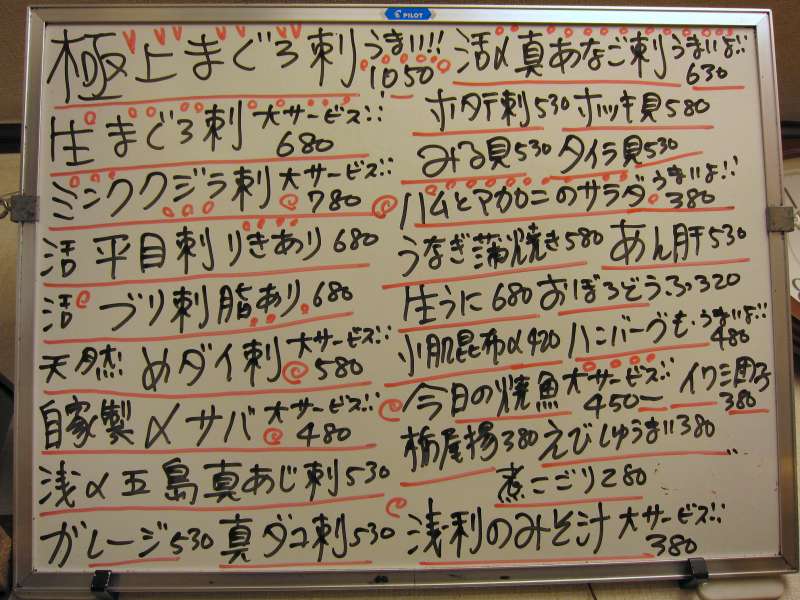 PILOT
極上まぐろ刺 うまい!!! 1050
生まぐろ刺 大サービス!! 680
ミンククジラ刺 大サービス!! 780
活 平目刺 りきあり 680
活 ブリ刺 脂あり 680
天然 めダイ刺 大サービス!! 580
自家製〆サバ 大サービス!! 480
浅〆五島真あじ刺 530
ガレージ 530 真ダコ刺 530
活〆真あなご刺 うまいよ!! 630
ホタテ刺 530 ホッキ貝 580
みる貝 530 タイラ貝 530
ハムとマカロニのサラダ うまいよ!! 380
うなぎ蒲焼き 580 あん肝 530
生うに 680 おぼろどうふ 320
小肌昆布〆 420 ハンバーグも うまいよ!! 480
今日の焼魚 大サービス!! 450ー イワシ団子 380
栃尾揚 380 えびしゅうまい 380
煮こごり 280
浅利のみそ汁 大サービス!! 380